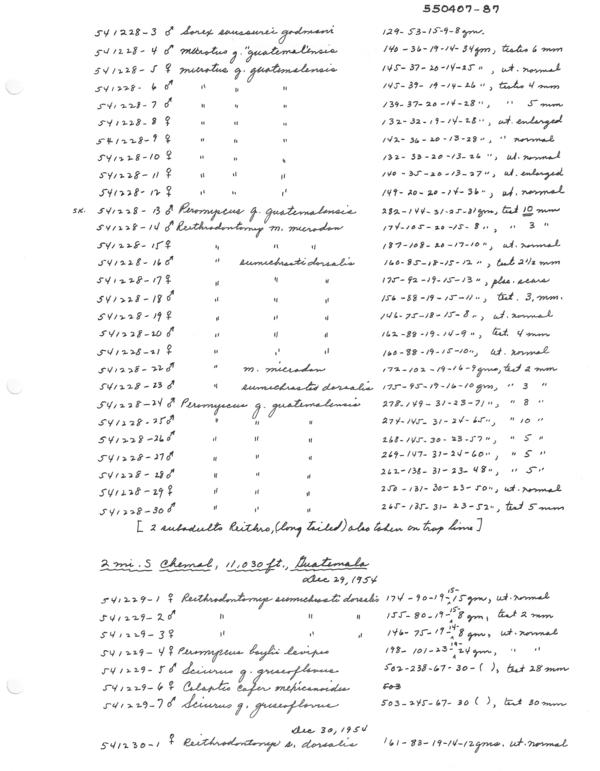 550407-87
541228-3 ♂ Sorex saussurei godmani 129-53-15-9-8 gm.
541228-4 ♂ microtus g. "guatemalensis 140-36-19-14-34 gm, testis 6 mm
541228-5 ♀ microtus g. guatemalensis 145-37-20-14-25 ", ut. normal
541228-6 ♂ " " " 145-39-19-14-26 ", testis 4 mm
541228-7 ♂ " " " 139-37-20-14-28 ", " 5 mm
541228-8 ♀ " " " 132-32-19-14-28 ", ut. enlarged
541228-9 ♀ " " " 142-36-20-13-28 ", " normal
541228-10 ♀ " " " 132-33-20-13-26 ", ut. normal
541228-11 ♀ " " " 140-35-20-13-27 ", ut. enlarged
541228-12 ♀ " " " 149-20-20-14-36 ", ut. normal
SK. 541228-13 ♂ Peromyscus g. guatemalensis 282-144-31-25-81 gm, test 10 mm
541228-14 ♂ Reithrodontomys m. microdon 174-105-20-15-8 ", " 3 "
541228-15 ♀ " " " 187-108-20-17-10 ", ut. normal
541228-16 ♂ " sumichrasti dorsalis 160-85-18-15-12 ", test 2 1/2 mm
541228-17 ♀ " " " 175-92-19-15-13 ", plac. scars
541228-18 ♂ " " " 156-88-19-15-11 ", test. 3, mm.
541228-19 ♀ " " " 146-75-18-15-8 ", ut. normal
541228-20 ♂ " " " 162-88-19-14-9 ", test. 4 mm
541228-21 ♀ " " " 160-88-19-15-10 ", ut. normal
541228-22 ♂ " m. microdon 172-102-19-16-9 gms, test 2 mm
541228-23 ♂ " sumichrasti dorsalis 175-95-19-16-10 gm, " 3 "
541228-24 ♂ Peromyscus g. guatemalensis 278-149-31-23-71 ", " 8 "
541228-25 ♂ " " " 274-145-31-24-65 ", " 10 "
541228-26 ♂ " " " 268-145-30-23-57 ", " 5 "
541228-27 ♂ " " " 269-147-31-24-60 ", " 5 "
541228-28 ♂ " " " 262-138-31-23-48 ", " 5 "
541228-29 ♀ " " " 250-131-30-23-50 ", ut. normal
541228-30 ♂ " " " 265-135-31-23-52 ", test 5 mm
[ 2 subadults Reithro, (long tailed) also taken on trap line ]
2 mi. S Chemal, 11,030 ft., Guatemala
Dec 29, 1954
541229-1 ♀ Reithrodontomys sumichrasti dorsalis 174-90-19-15-15 gm, ut. normal
541229-2 ♂ " " " 155-80-19-15-8 gm, test 2 mm
541229-3 ♀ " " " 146-75-19-14-8 gm, ut. normal
541229-4 ♀ Peromyscus boylii levipes 198-101-23-19-24 gm, " "
541229-5 ♂ Sciurus g. griseoflavus 502-238-67-30-( ), test 28 mm
541229-6 ♀ Colaptes cafer mexicanoides 503
541229-7 ♂ Sciurus g. griseoflavus 503-245-67-30 ( ), test 30 mm
Dec 30, 1954
541230-1 ♀ Reithrodontomys s. dorsalis 161-83-19-14-12 gms. ut. normal